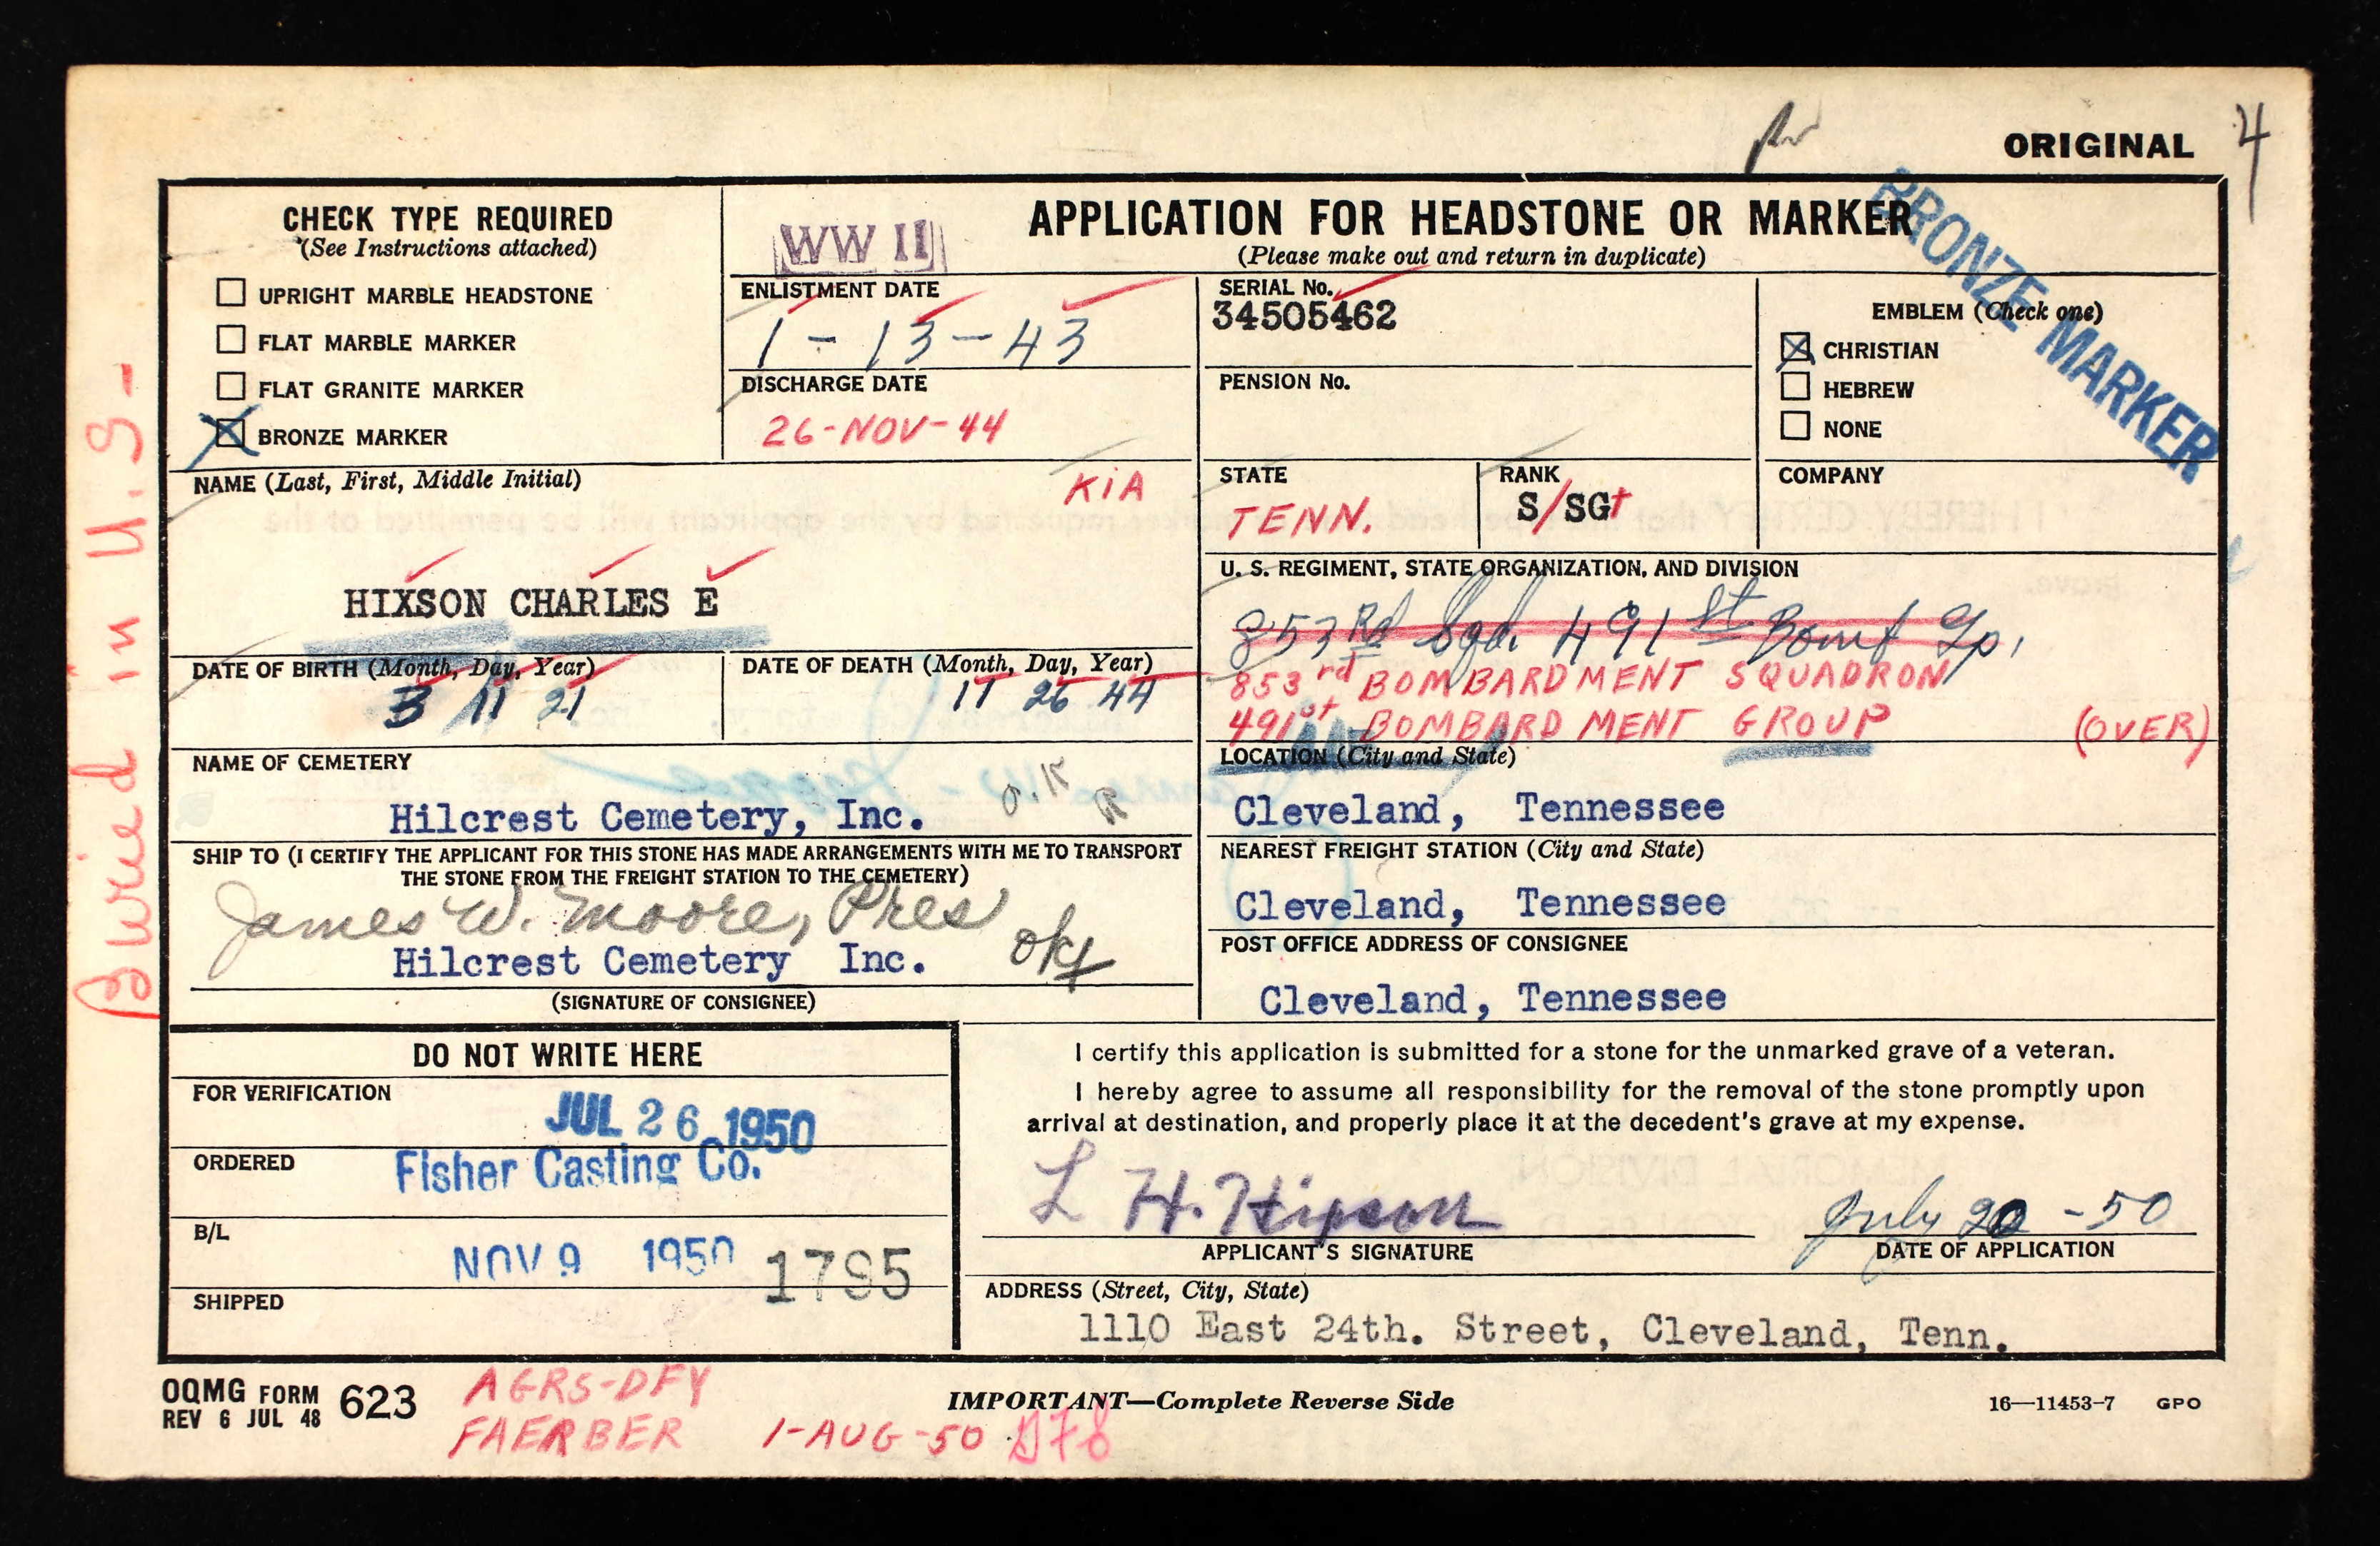 ORIGINAL 4
CHECK TYPE REQUIRED
(See Instructions attached)
UPRIGHT MARBLE HEADSTONE
FLAT MARBLE MARKER
FLAT GRANITE MARKER
BRONZE MARKER
WW II
APPLICATION FOR HEADSTONE OR MARKER
(Please make out and return in duplicate)
BRONZE MARKER
ENLISTMENT DATE
1-13-43
DISCHARGE DATE
26-NOV-44
SERIAL No.
34505462
PENSION No.
EMBLEM (Check one)
CHRISTIAN
HEBREW
NONE
NAME (Last, First, Middle Initial)
KiA
HIXSON CHARLES E
STATE
TENN.
RANK
S/SGt
COMPANY
U. S. REGIMENT, STATE ORGANIZATION, AND DIVISION
853Rd Sqd. 491st Bomb Gp.
853rd BOMBARDMENT SQUADRON
491st BOMBARDMENT GROUP (OVER)
DATE OF BIRTH (Month, Day, Year)
3 11 21
DATE OF DEATH (Month, Day, Year)
11 26 44
NAME OF CEMETERY
Hilcrest Cemetery, Inc.
LOCATION (City and State)
Cleveland, Tennessee
SHIP TO (I CERTIFY THE APPLICANT FOR THIS STONE HAS MADE ARRANGEMENTS WITH ME TO TRANSPORT
THE STONE FROM THE FREIGHT STATION TO THE CEMETERY)
James W. Moore, Pres
Hilcrest Cemetery Inc.
(SIGNATURE OF CONSIGNEE)
NEAREST FREIGHT STATION (City and State)
Cleveland, Tennessee
POST OFFICE ADDRESS OF CONSIGNEE
Cleveland, Tennessee
Buried in U.S-
DO NOT WRITE HERE
FOR VERIFICATION
JUL 26 1950
ORDERED
Fisher Casting Co.
B/L
NOV 9 1950 1795
SHIPPED
I certify this application is submitted for a stone for the unmarked grave of a veteran.
I hereby agree to assume all responsibility for the removal of the stone promptly upon
arrival at destination, and properly place it at the decedent's grave at my expense.
L H. Hixson
APPLICANT'S SIGNATURE
July 20 -50
DATE OF APPLICATION
ADDRESS (Street, City, State)
1110 East 24th. Street, Cleveland, Tenn.
OQMG FORM 623
REV 6 JUL 48
AGRS-DFY
FAERBER 1-AUG-50
IMPORTANT—Complete Reverse Side
16—11453-7 GPO